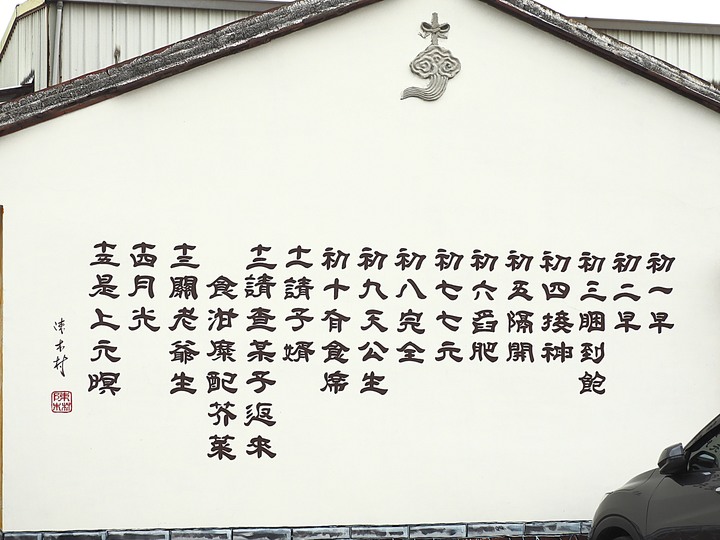 初一早
初二早
初三睏到飽
初四接神
初五隔開
初六舀肥
初七七元
初八完全
初九天公生
初十有食席
十一請子婿
十二請查某子返來
食泔糜配芥菜
十三關老爺生
十四月光
十五是上元暝